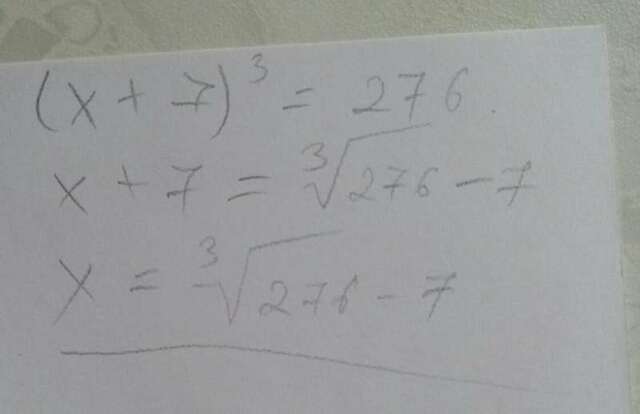 (x + 7)³ = 276.
x + 7 = ³√276 - 7
x = ³√276 - 7